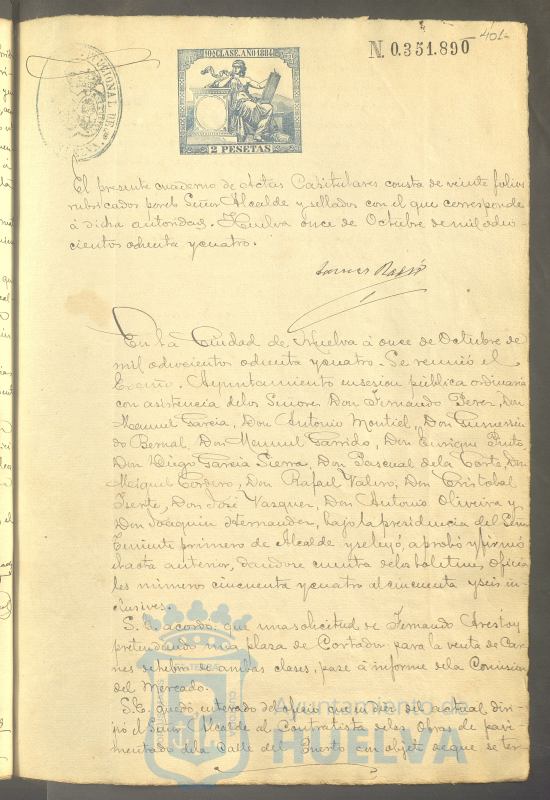 401-
N. 0.351.890
10ª CLASE. AÑO 1884
2 PESETAS
El presente cuaderno de Actas Capitulares consta de veinte folios
rubricados por el Señor Alcalde y sellados con el que corresponde
á dicha autoridad. Huelva once de Octubre de mil ocho-
cientos ochenta y cuatro.
En la Ciudad de Huelva á once de Octubre de
mil ochocientos ochenta y cuatro. Se reunió el
Excmo. Ayuntamiento en sesion pública ordinaria
con asistencia de los Señores Don Fernando Perez, Don
Manuel Garcia, Don Antonio Montiel, Don Gumersin-
do Bernal, Don Manuel Garrido, Don Enrique
Don Diego Garcia Sierra, Don Pascual de la Corte, Don
Miguel Cordero, Don Rafael Valero, Don Cristobal
Don José Vazquez, Don Antonio Oliveira y
Don Joaquin Hernandez, bajo la presidencia del Señor
Teniente primero de Alcalde y se leyó, aprobó y firmó
el acta anterior, dandose cuenta de los boletines oficia-
les números cincuenta y cuatro al cincuenta y seis in-
clusives.
S.E. acordó que una solicitud de Fernando
pretendiendo una plaza de Cortador para la venta de Car-
nes de hebra de ambas clases, pase á informe de la Comision
del Mercado.
S.E. quedó enterado del oficio que del actual diri-
gió el Señor Alcalde al Contratista de las Obras de pavi-
mentado de la Calle del Puerto con objeto de que se ter-
Ayuntamiento de
HUELVA